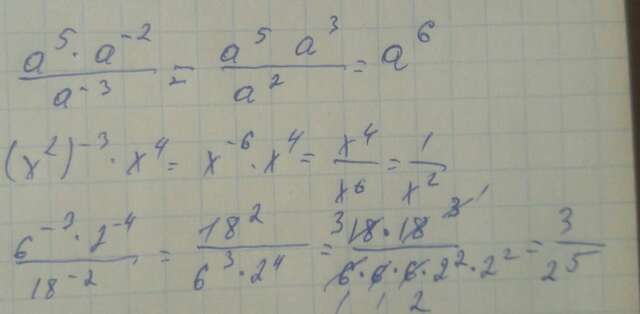 a⁵·a⁻²/a⁻³ = a⁵ a³/a² = a⁶
(x²)⁻³·x⁴ = x⁻⁶·x⁴ = x⁴/x⁶ = 1/x²
6⁻³·2⁻⁴/18⁻² = 18²/6³·2⁴ = 3 18·18 3 1/6·6·6·2²·2² 1 1 2 = 3/2⁵